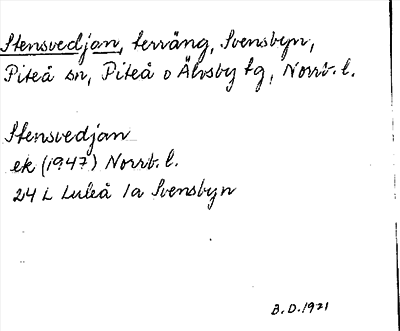 Stensvedjan, terräng, Svensbyn,
Piteå sn, Piteå o Älvsby tg, Norrb. l.
Stensvedjan
ek (1947) Norrb. l.
24 L Luleå 1a Svensbyn
B.D. 1971